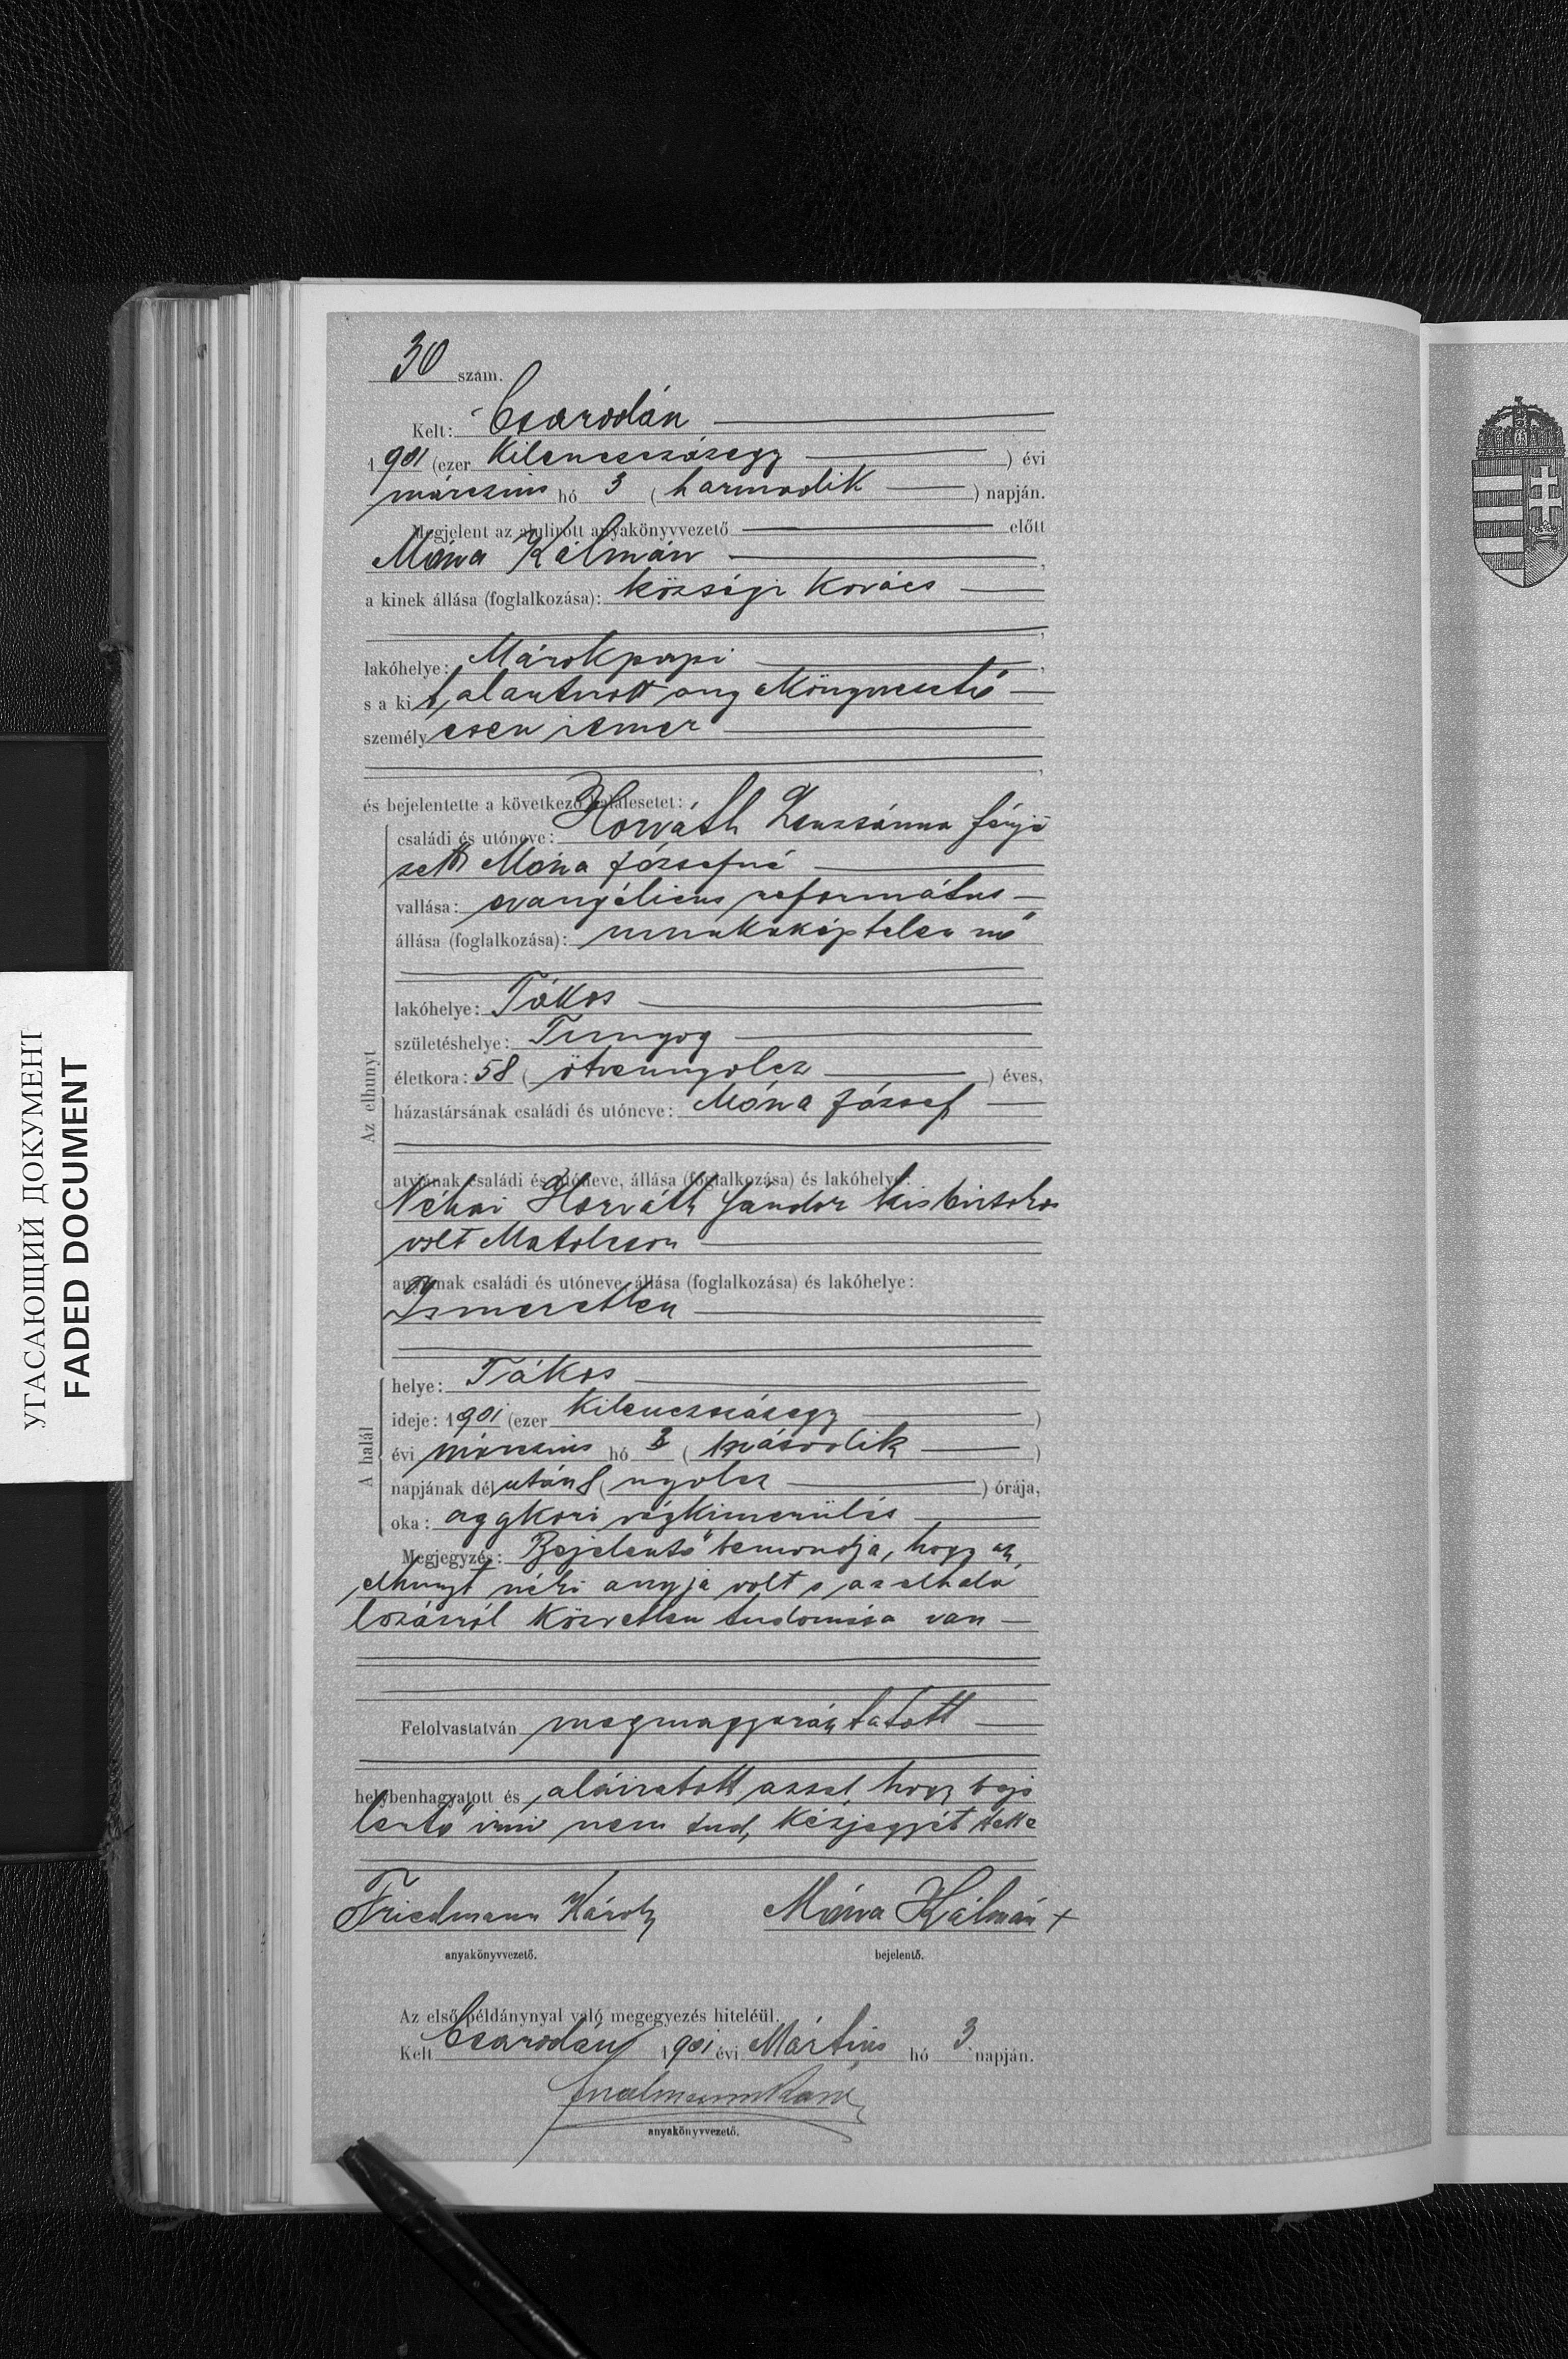 30 szám.
Kelt: Csarodán
1901 (ezer Kilenczszázegy) évi
márczius hó 3 (harmadik) napján.
Megjelent az alulirott anyakönyvvezető előtt
Móna Kálmán,
a kinek állása (foglalkozása): községi Kovács
,
lakóhelye: Márokpapi,
s a kit, alantirott anyakönyvvezető
személyesen ismer
,
és bejelentette a következő halálesetet:
Az elhunyt
családi és utóneve: Horváth Zsuzsánna férje
zett Móna Józsefné
vallása: evangélicus református
állása (foglalkozása): munkaképtelen nő
lakóhelye: Tákos
születéshelye: Tunyog
életkora: 58 (ötvennyolcz) éves,
házastársának családi és utóneve: Móna József
atyjának családi és utóneve, állása (foglalkozása) és lakóhelye:
Néhai Horváth Sándor kisbirtokos
volt Matolcson
anyjának családi és utóneve, állása (foglalkozása) és lakóhelye:
Ismeretlen
A halál
helye: Tákos
ideje: 1901 (ezer Kilenczszázegy)
évi márczius hó 2 (második)
napjának délután 8 (nyolcz) órája,
oka: aggkori végkimerülés
Megjegyzés: Bejelentő bemondja, hogy az
elhunyt néki anyja volt s az elhalá
lozásról közvetlen tudomása van
Felolvastatván megmagyaráztatott
helybenhagyatott és aláiratott azzal, hogy beje
lentő irni nem tud, kézjegyét tette
Friedmann Károly Móna Kálmán +
anyakönyvvezető. bejelentő.
Az első példánynyal való megegyezés hiteléül.
Kelt Csarodán 1901 évi Mártius hó 3 napján.
Friedmann Károly
anyakönyvvezető.
УГАСАЮЩИЙ ДОКУМЕНТ
FADED DOCUMENT